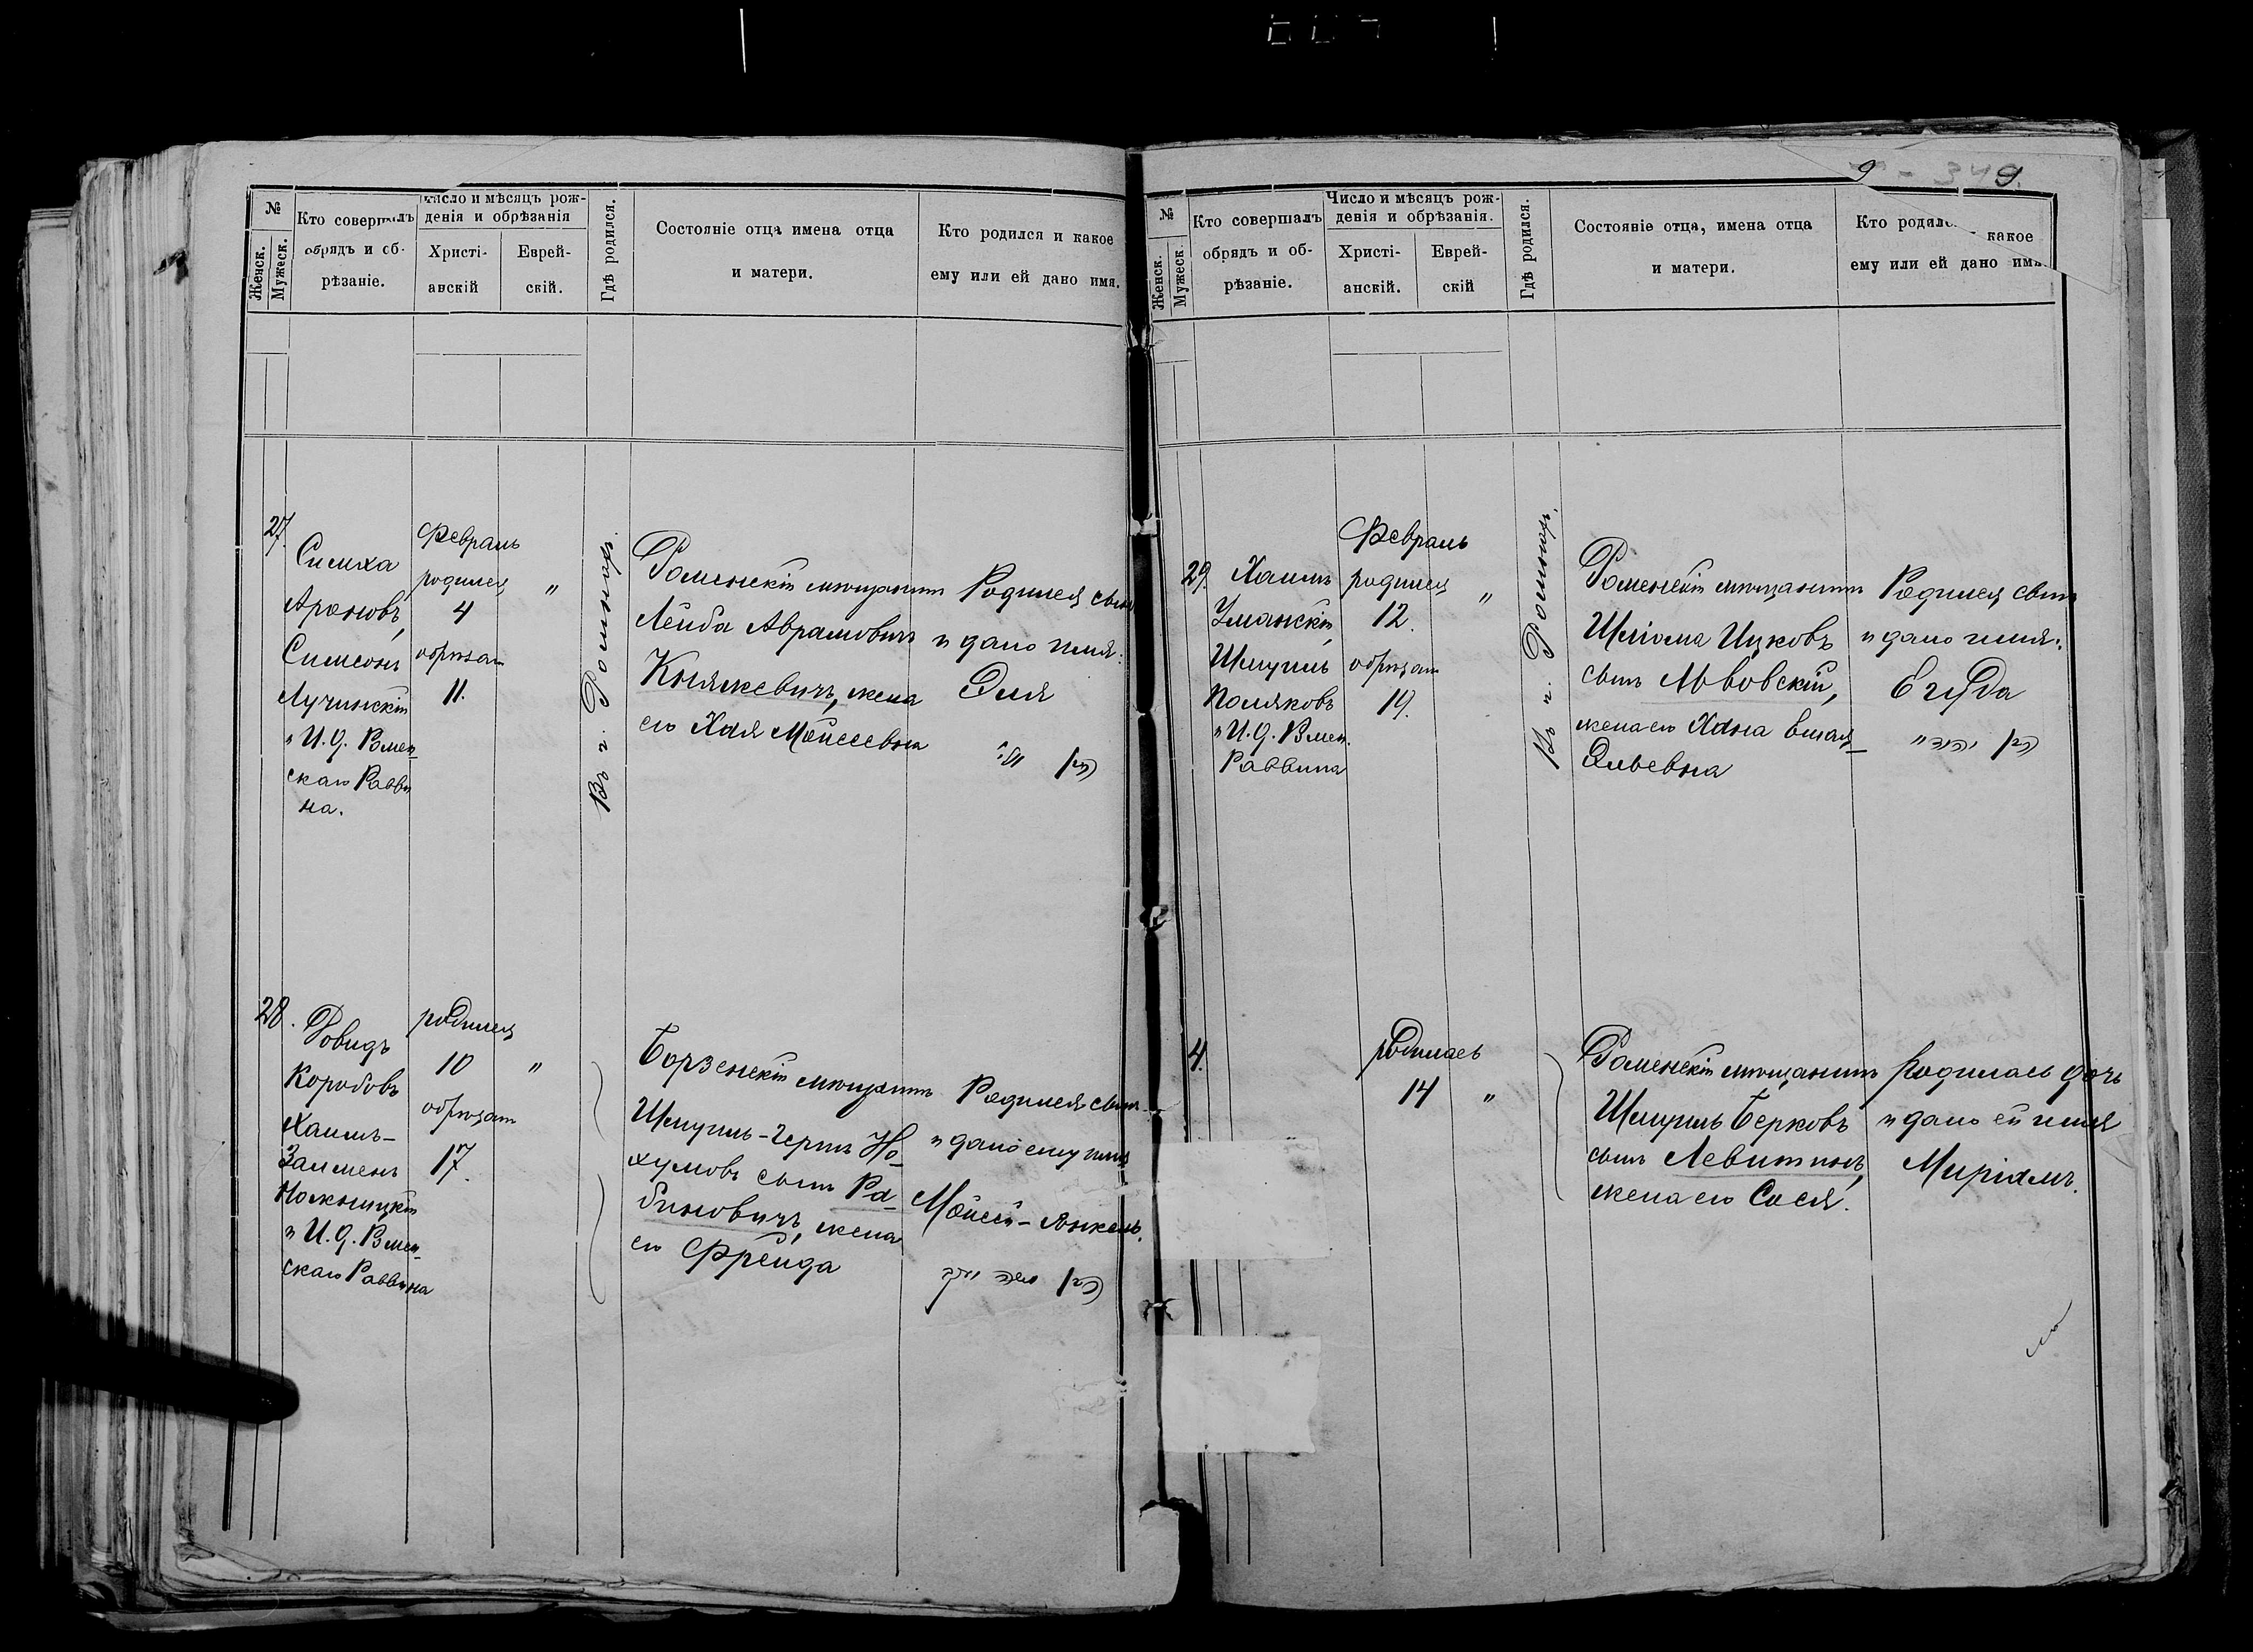 №
Женск.
Мужеск.
Кто совершалъ
обрядъ и об-
рѣзаніе.
Число и мѣсяцъ рож-
денія и обрѣзанія
Христі-
анскій
Еврей-
скій.
Гдѣ родился.
Состояніе отца имена отца
и матери.
Кто родился и какое
ему или ей дано имя.
27.
Симха
Ароновъ,
Симеонъ
Лучинскій
и И. д. Ромен
скаго Равви
на.
Февраль
родился
4
обрѣзан
11.
"
Въ г. Ромнахъ.
Роменскій мѣщанинъ
Лейба Аврамовичъ
Княжевичъ, жена
его Хая Мойсеевна
Родился сынъ
и дано имя:
Эля
28.
Довидъ
Коробовъ
Хаимъ-
Залменъ
и И. д. Ромен
скаго Раввина
родился
10
обрѣзан
17.
"
Борзенскій мѣщанинъ
Шмуиль-Герцъ Но
хумовъ сынъ Ра
биновичъ, жена
его Фрейда
Родился сынъ
и дано ему имя
Мойсей-Янкель.
9
349.
№
Женск.
Мужеск.
Кто совершалъ
обрядъ и об-
рѣзаніе.
Число и мѣсяцъ рож-
денія и обрѣзанія.
Христі-
анскій.
Еврей-
скій
Гдѣ родился.
Состояніе отца, имена отца
и матери.
Кто родилс какое
ему или ей дано имя
29.
Хаимъ
Уманскій,
Шмуиль
Поляковъ
и И. д. Ромен.
Раввина
Февраль
родился
12.
обрѣзан
19.
"
Въ г. Ромнахъ.
Роменскій мѣщанинъ
Шліома Ицковъ
сынъ Львовскій,
жена его Хана
Эльевна
Родился сынъ
и дано имя:
Егуда
4.
родилась
14
"
Роменскій мѣщанинъ
Шмуиль Берковъ
сынъ Левитинъ,
жена его Сося.
родилась дочь
и дано ей имя
Миріамъ.